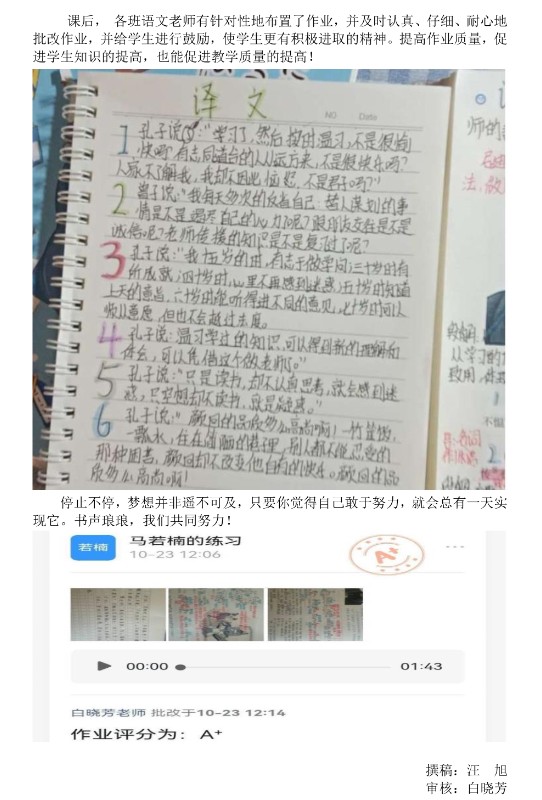 课后， 各班语文老师有针对性地布置了作业，并及时认真、仔细、耐心地
批改作业，并给学生进行鼓励，使学生更有积极进取的精神。提高作业质量，促
进学生知识的提高，也能促进教学质量的提高！
译文
NO Date
1 孔子说：“学习了，然后按时温习，不是很愉
快吗？有志同道合的人从远方来，不是很快乐吗？
人家不了解我，我却不因此恼怒，不是君子吗？”
2 曾子说：“我每天多次的反省自己：替人谋划的事
情是不是竭尽自己的心力了呢？跟朋友交往是不是
诚信呢？老师传授的知识是不是复习了呢？
3 孔子说：“我十五岁的时，有志于做学问；三十岁时有
所成就；四十岁时，心里不再感到迷惑；五十岁时知道
上天的意旨，六十岁时能听得进不同的意见，七十岁时可以
顺从意愿，但也不会越过法度。
4 孔子说：温习学过的知识，可以得到新的理解和
体会，可以凭借这个做老师了。”
5 孔子说：“只是读书，却不认真思考，就会感到迷
惑，只空想却不读书，就是疑惑。”
6 孔子说：“颜回的品质多么高尚啊！一竹筐饭，
一瓢水，住在简陋的巷理，别人都不能忍受的
那种困苦，颜回却不改变他自有的快乐。颜回的品
质多么高尚啊！
师的
从学习的
致用
停止不停，梦想并非遥不可及，只要你觉得自己敢于努力，就会总有一天实
现它。书声琅琅，我们共同努力！
若楠
马若楠的练习
10-23 12:06
A+
00:00
01:43
白晓芳老师 批改于10-23 12:14
作业评分为： A+
撰稿：汪 旭
审核：白晓芳